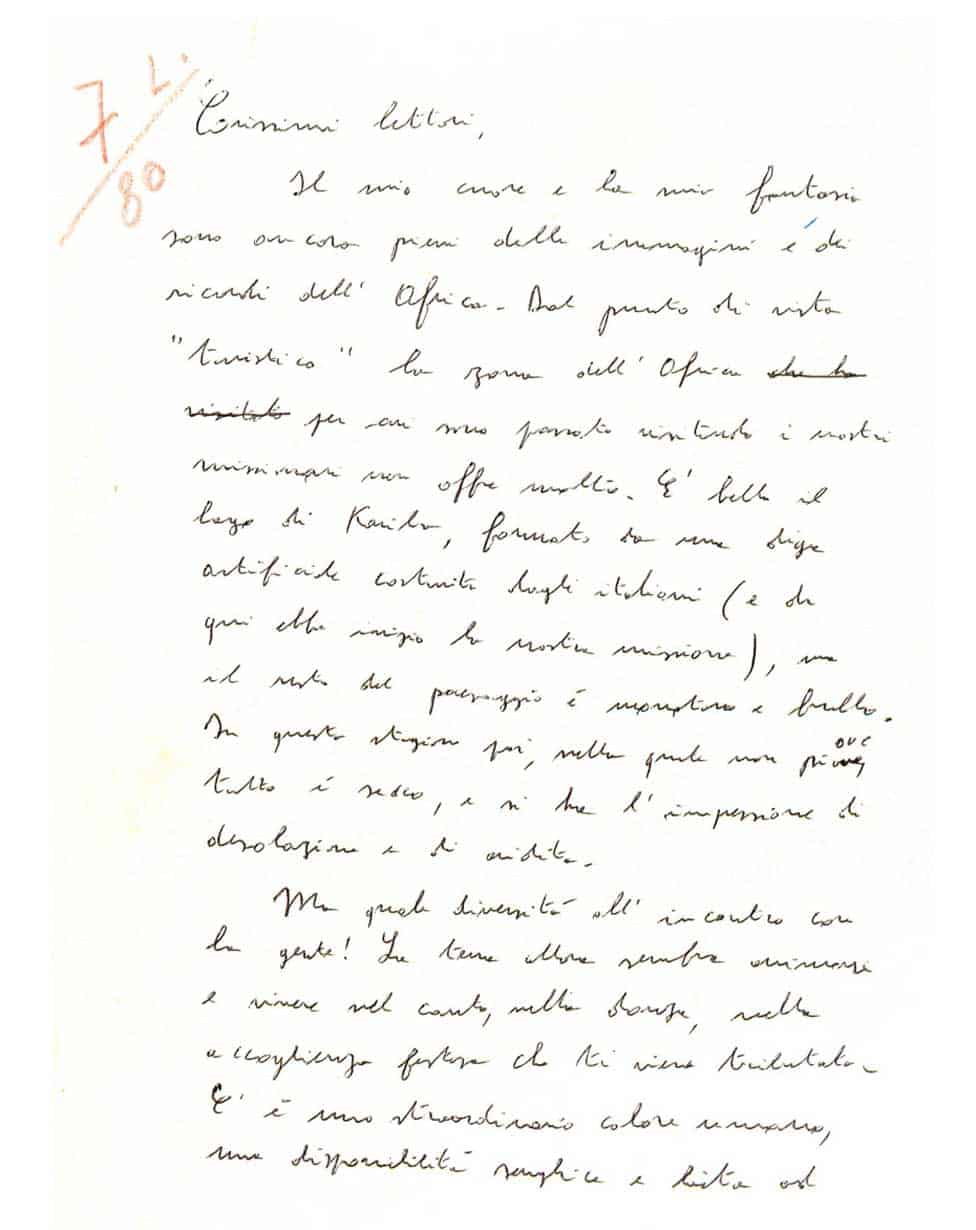 7 L.
80
Carissimi lettori,
Il mio cuore e la mia fantasia
sono ancora pieni delle immagini e dei
ricordi dell'Africa. Dal punto di vista
"turistico" la zona dell'Africa che ho
visitato per cui sono passato visitando i nostri
missionari non offre molto. E' bello il
lago di Kariba, formato da una diga
artificiale costruita dagli italiani (e da
qui ebbe inizio la nostra missione), ma
il resto del paesaggio è monotono e brullo.
In questa stagione poi, nella quale non piove
tutto è secco, e si ha l'impressione di
desolazione e di aridità.
Ma quale diversità all'incontro con
la gente! La terra allora sembra animarsi
e vivere nel canto, nella danza, nella
accoglienza festosa che ti viene tributata.
C'è uno straordinario calore umano,
una disponibilità semplice e lieta ad